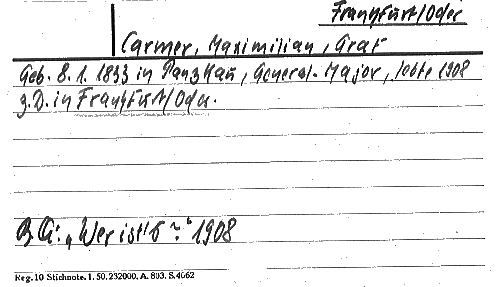 Frankfurt/Oder
Carmer, Maximilian, Graf
Geb. 8. 1. 1833 in Panzkau, General-Major, lebte 1908
z.D. in Frankfurt/Oder.
B.A.: „Wer ist's?" 1908
Reg. 10 Stichnote. 1. 50. 232000. A. 803. S. 4062